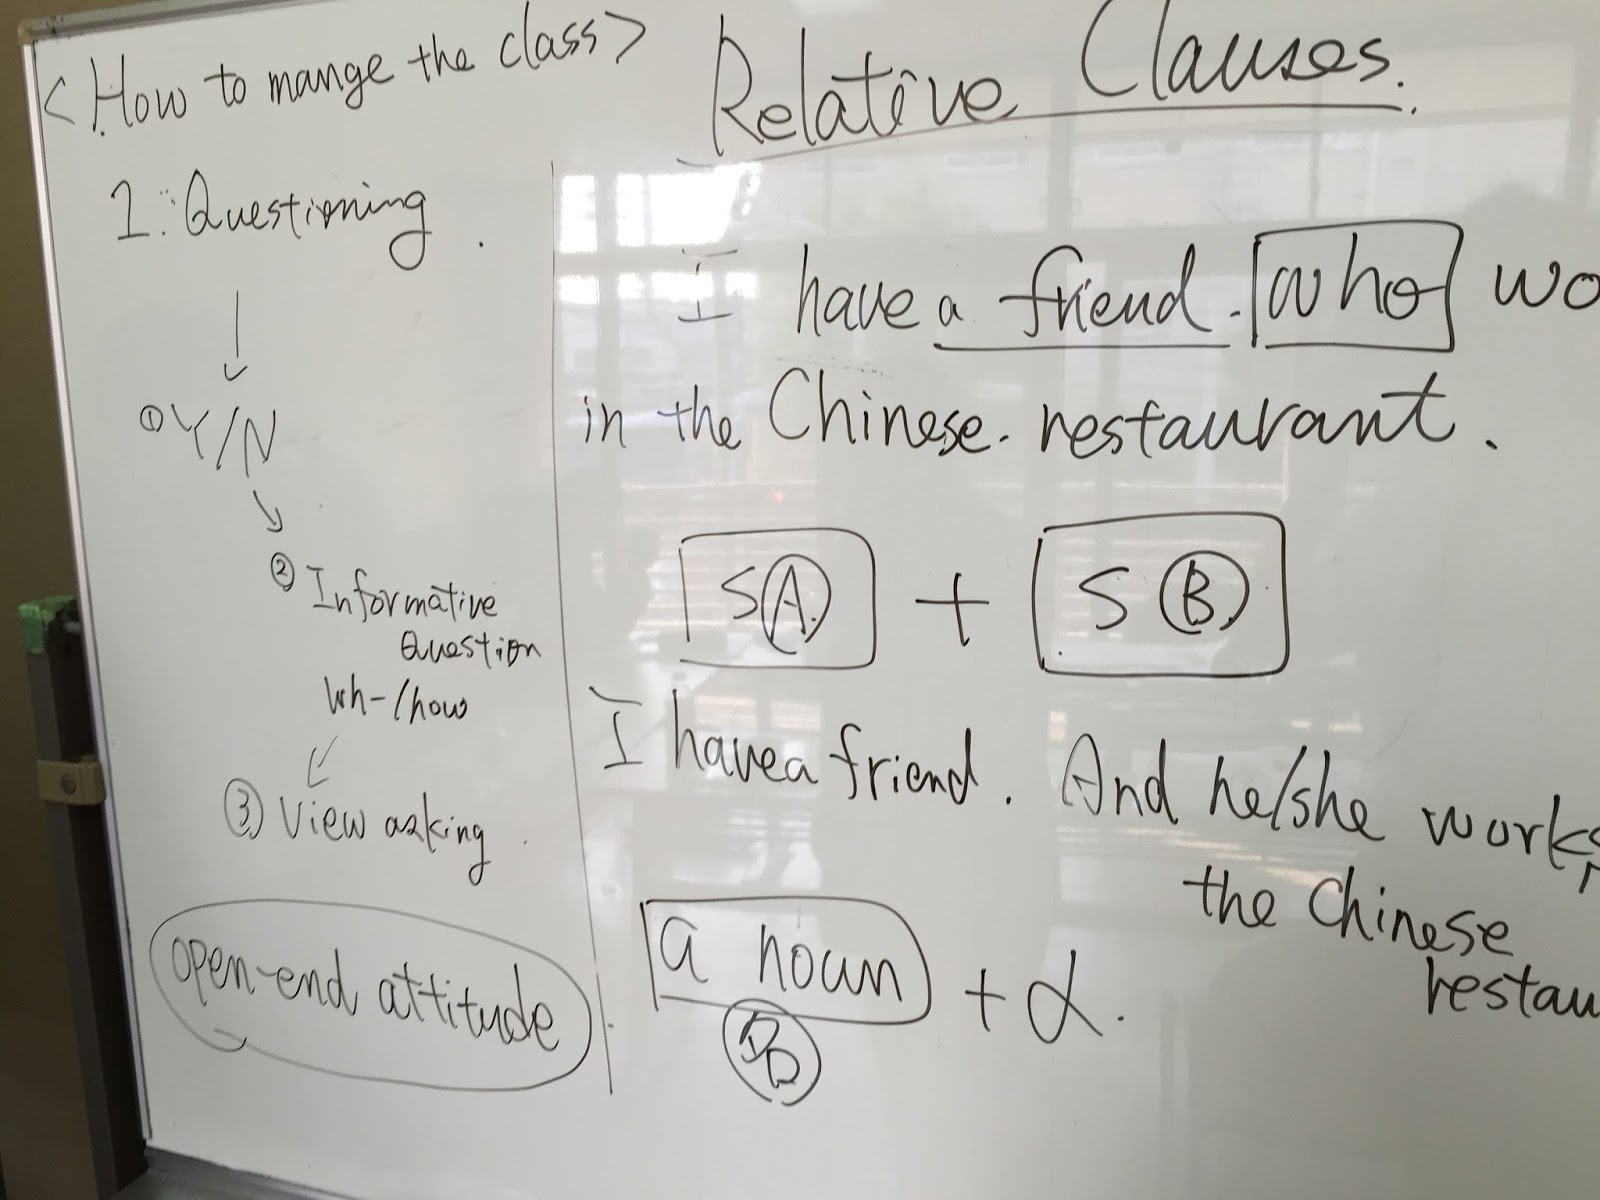 <How to mange the class>
1. Questioning.
↓
① Y/N
↘
② Informative
Question
Wh-/how
↙
③ View asking.
open-end attitude
Relative Clauses.
I have a friend. who wo
in the Chinese. restaurant.
S Ⓐ + S Ⓑ
I have a friend. And he/she works
the Chinese
restau
a noun + α.